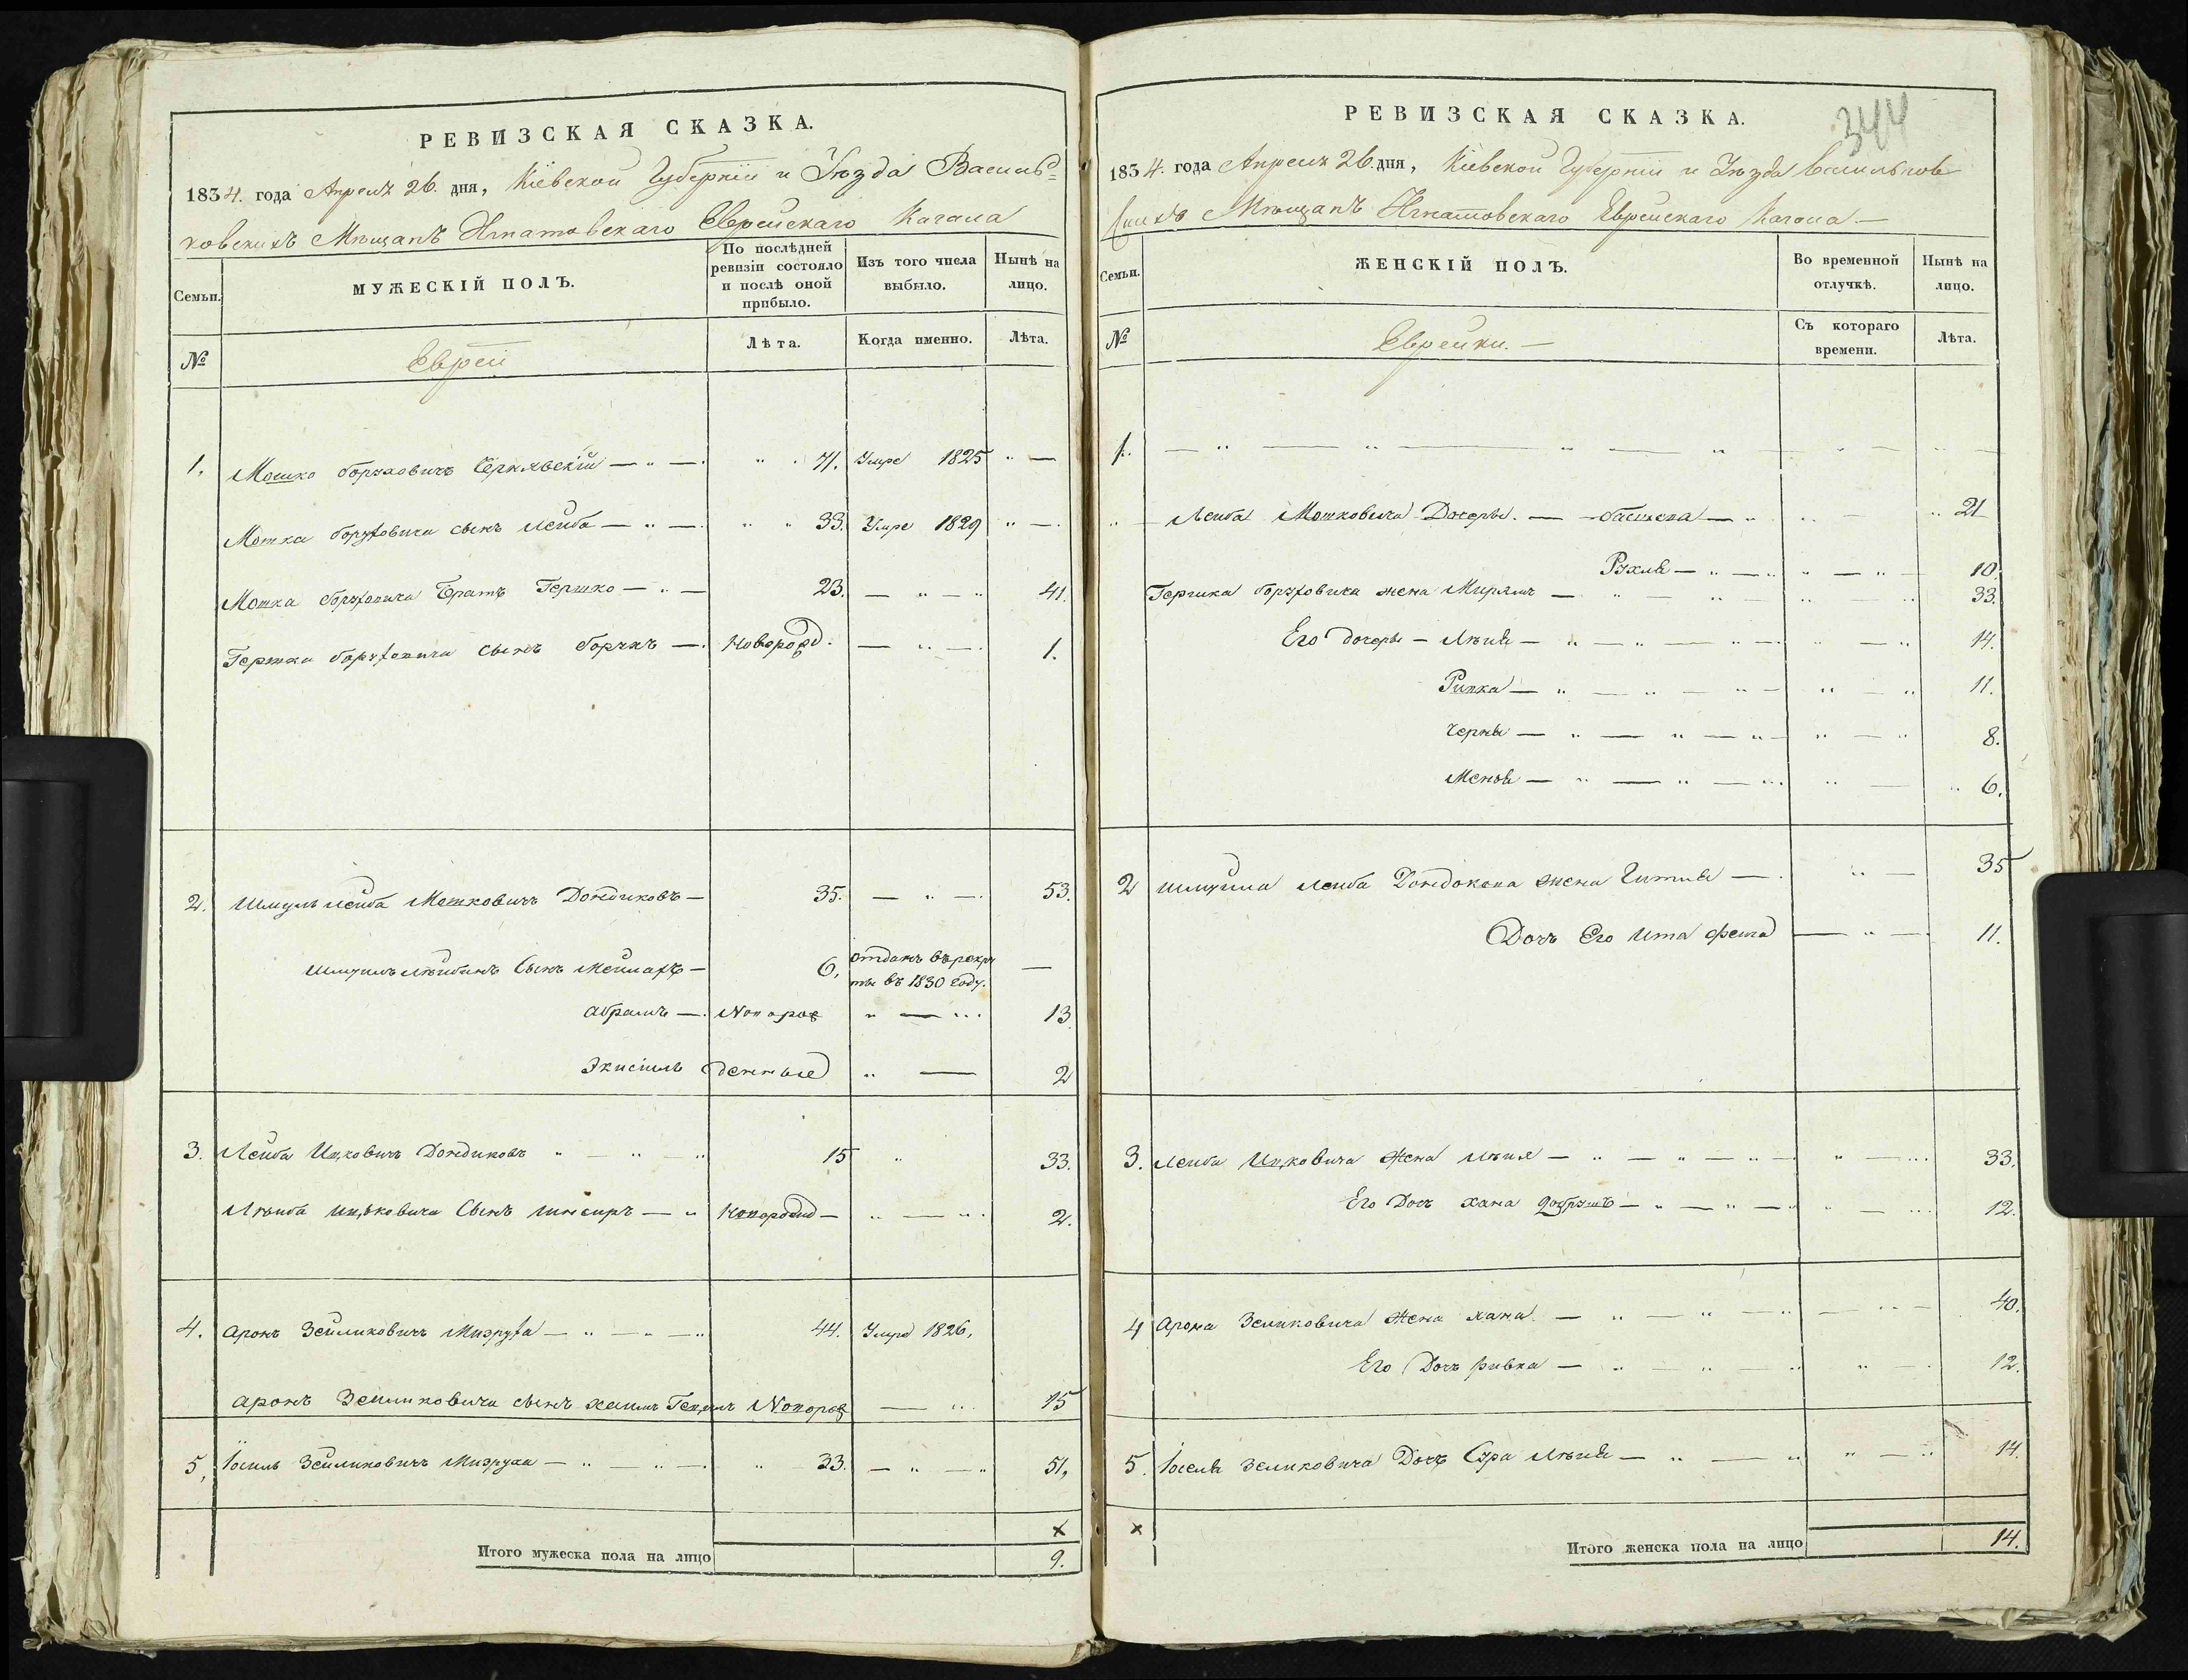 РЕВИЗСКАЯ СКАЗКА.
1834. года Апреля 26. дня, Кіевской Губерніи и Уѣзда Василь=
ковскихъ Мѣщанъ Игнатовскаго Еврейскаго Кагала
Семьи.
МУЖЕСКІЙ ПОЛЪ.
По послѣдней ревизіи состояло и послѣ оной прибыло.
Изъ того числа выбыло.
Нынѣ на лицо.
№
Евреи
Лѣта.
Когда именно.
Лѣта.
1. Мошко Борухович 71. Умре 1825 " —
Мошка Боруховича сынъ Лейба — " — " " 33. Умре 1829 " —
Мошка Боруховича Братъ Гершко — " — 23. — " — " 41.
Гершка Боруховича сынъ Борухъ — Новорожд. — " — 1.
2. Шмуль Лейба Мошковичъ Дондиковъ — 35. — " — 53.
Шмуль Лейбинъ Сынъ Мейлахъ — 6, отданъ въ рекру
ты въ 1830 году. —
Абрамъ — Новорож " — " 13
Экисиль денные " — 2
3. Лейба Ицковичъ Дондиковъ " — " — " 15 " 33.
Лейба Ицьковича Сынъ — " Новорожд — " — " 2.
4. Аронъ Зейликовичъ Мизруха — " — " — " 44. Умре 1826,
Аронъ Зейликовича сынъ Хаимъ Новорож — " 15
5, Іосиль Зейликовичъ Мизруха — " — " — " 33. — " — " 51,
Итого мужеска пола на лицо
×
9.
344
РЕВИЗСКАЯ СКАЗКА.
1834. года Апреля 26. дня, Кіевской Губерніи и Уѣзда Васильков
скихъ Мѣщанъ Игнатовскаго Еврейскаго Кагала —
Семьи.
ЖЕНСКІЙ ПОЛЪ.
Во временной отлучкѣ.
Нынѣ на лицо.
№
Еврейки. —
Съ котораго времени.
Лѣта.
1. — " — " — " — " — " —
" — Лейба Мошковича Дочеры. — Басшева — " " — " 21
Рухля — " — " " — " 10.
Гершка Боруховича жена Мирямъ — " — " — " " 33.
Его дочеры — Лѣия — " — " — " — " — " 14.
Ривка — " — " — " — " — " 11.
Черны — " — " — " — " — " 8.
Меня — " — " — " " — " 6.
2 Шмуила Лейба Дондокова жена Гитля — " — 35
Дочъ Его Ита Фейга — " — 11.
3. Лейба Ицковича Жена Лѣия — " — " — " — " — " 33.
Его Дочъ Хана Добрушъ — " — " — " — " 12.
4 Арона Зейликовича Жена Хана. — " — " — " — " — 40.
Его Дочъ Ривка — " — " — " " — 12.
5. Іоселя Зейликовича Дочъ Сура Лѣия — " — " " — " 14.
×
Итого женска пола на лицо
14.